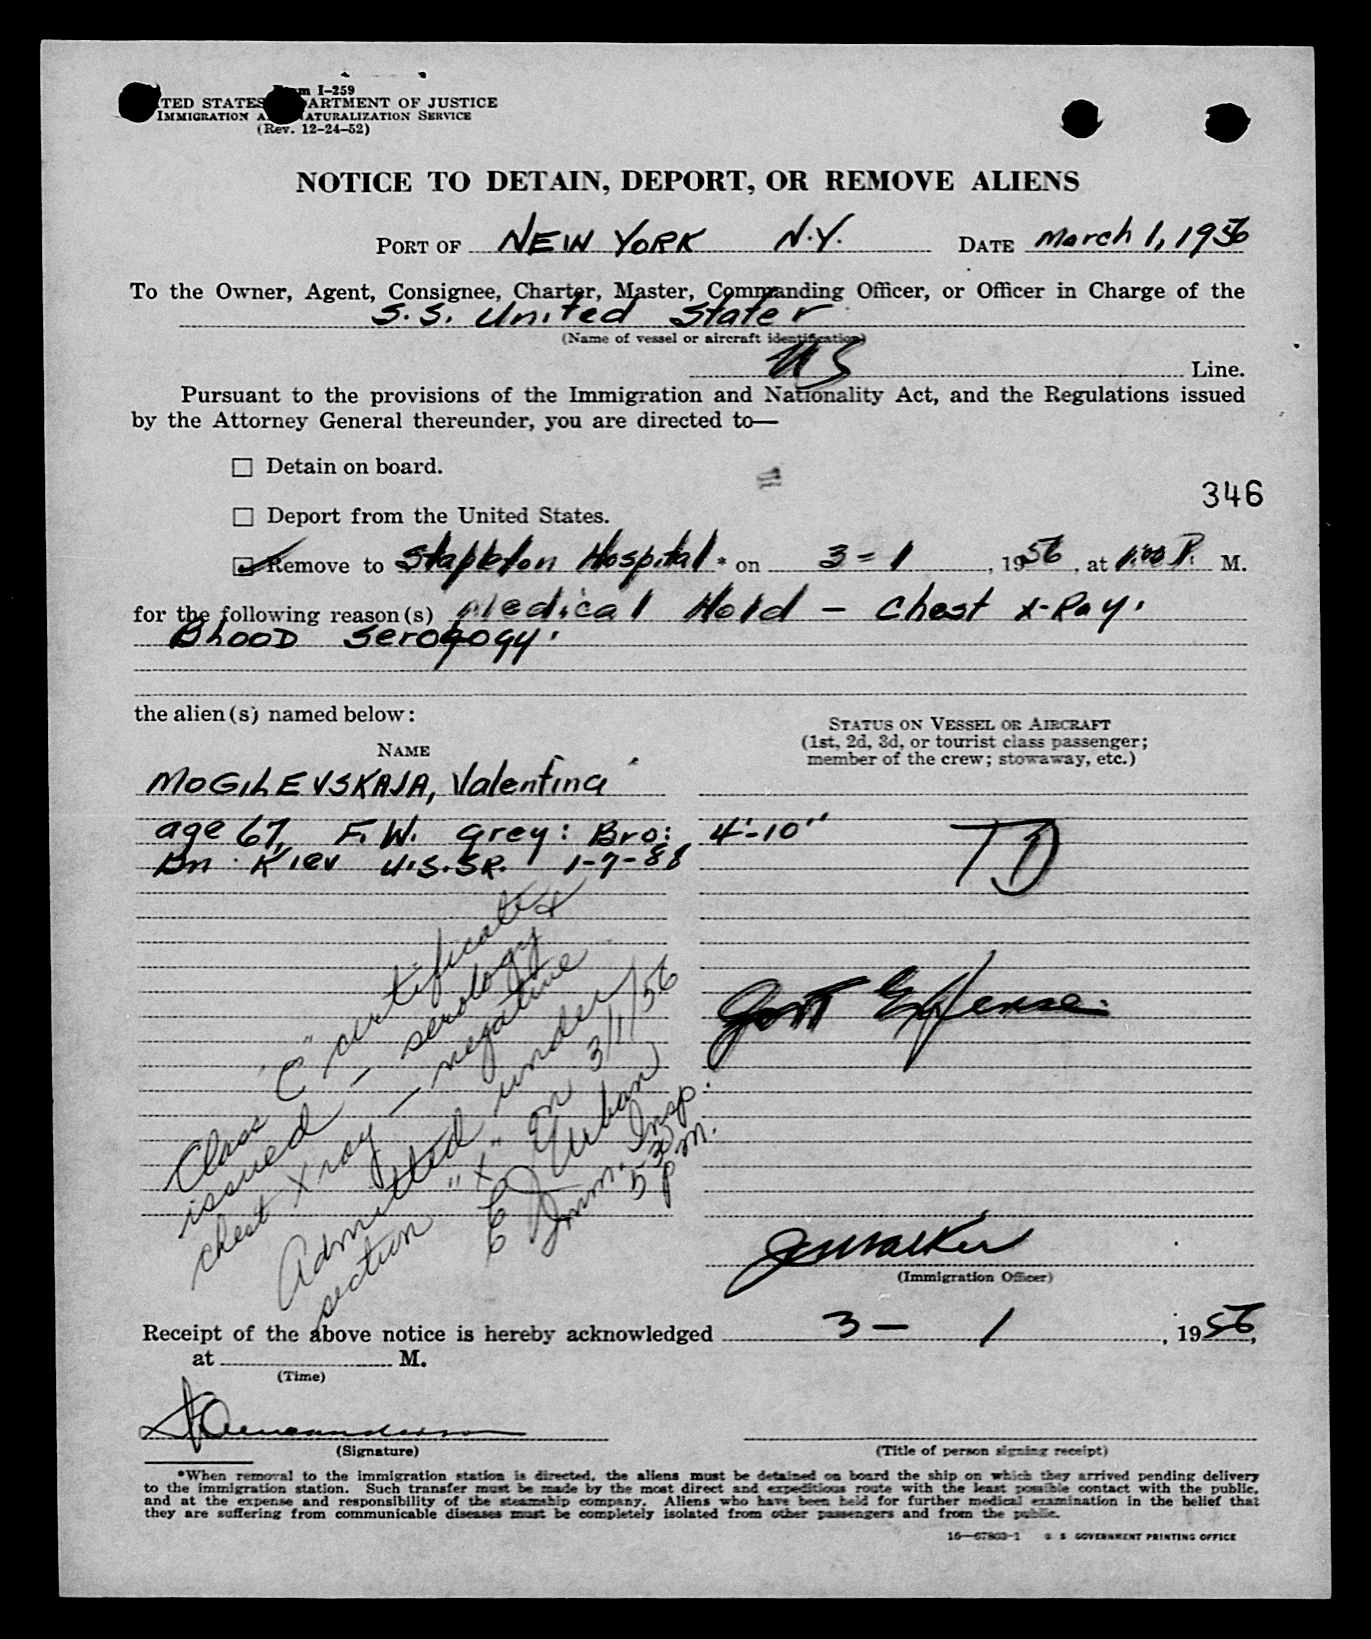 Form I-259
UNITED STATES DEPARTMENT OF JUSTICE
IMMIGRATION AND NATURALIZATION SERVICE
(Rev. 12-24-52)
NOTICE TO DETAIN, DEPORT, OR REMOVE ALIENS
PORT OF NEW YORK N.Y. DATE March 1, 1956
To the Owner, Agent, Consignee, Charter, Master, Commanding Officer, or Officer in Charge of the
S.S. United States
(Name of vessel or aircraft identification)
US Line.
Pursuant to the provisions of the Immigration and Nationality Act, and the Regulations issued
by the Attorney General thereunder, you are directed to—
☐ Detain on board.
346
☐ Deport from the United States.
☑ Remove to Stapleton Hospital * on 3-1, 1956, at 1:00 P. M.
for the following reason(s) Medical Hold - Chest X-Ray.
BLOOD Serology.
the alien(s) named below:
STATUS ON VESSEL OR AIRCRAFT
(1st, 2d, 3d, or tourist class passenger;
member of the crew; stowaway, etc.)
NAME
MOGILEVSKAJA, Valentina
age 67, F. W. Grey: Bro: 4'-10"
Bn Kiev U.S.SR. 1-7-88
TD
Class "C" certificate
issued - serology +
chest X ray - negative
Admitted under
section "X" on 3/1/56
E Urban
Imm. Insp.
5 30 pm.
Govt Expense.
J C Walker
(Immigration Officer)
Receipt of the above notice is hereby acknowledged 3 - 1, 1956,
at M.
(Time)
(Signature)
(Title of person signing receipt)
*When removal to the immigration station is directed, the aliens must be detained on board the ship on which they arrived pending delivery
to the immigration station. Such transfer must be made by the most direct and expeditious route with the least possible contact with the public,
and at the expense and responsibility of the steamship company. Aliens who have been held for further medical examination in the belief that
they are suffering from communicable diseases must be completely isolated from other passengers and from the public.
16—67803-1 U. S. GOVERNMENT PRINTING OFFICE